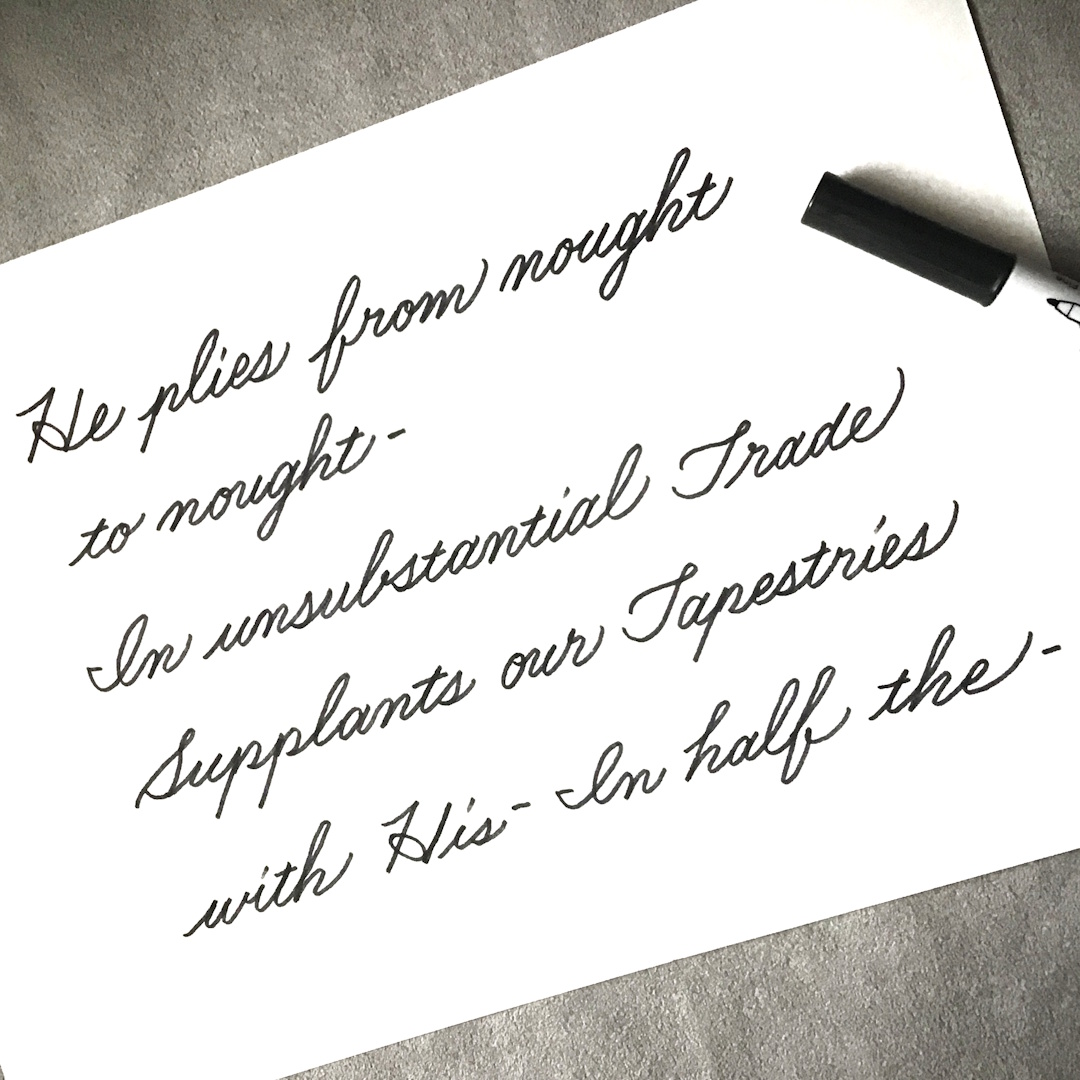 He plies from nought
to nought-
In unsubstantial Trade
Supplants our Tapestries
with His- In half the-